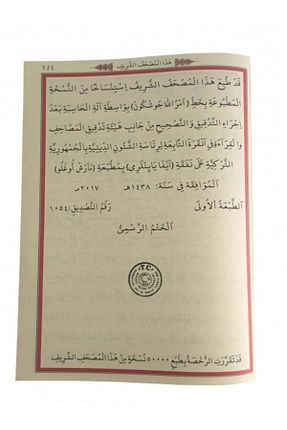 هٰذَا الْمُصْحَفُ الشَّرِيفُ
قَدْ طُبِعَ هَذَا الْمُصْحَفُ الشَّرِيفُ اِسْتِنْسَاخًا مِنَ النُّسْخَةِ
الْمَطْبُوعَةِ بِخَطِّ (اَمْرُ اللّٰهِ جُوشْكُونْ) بِوَاسِطَةِ آلَةِ الْحَاسِبَةِ بَعْدَ
اِجْرَاءِ التَّدْقِيقِ وَالتَّصْحِيحِ مِنْ جَانِبِ هَيْئَةِ تَدْقِيقِ الْمَصَاحِفِ
وَالْقِرَاءَةِ فِي اَنْقَرَةَ التَّابِعَةِ لِرِئَاسَةِ الشُّئُونِ الدِّينِيَّةِ بِالْجُمْهُورِيَّةِ
التُّرْكِيَّةِ عَلَى نَفَقَةِ (آيْفَا) بِمَطْبَعَةِ (مَارْشْ اُوغْلُو)
اَلْمُوَافِقِ فِي سَنَةِ: ١٤٣٨هـ ٢٠١٧مـ
اَلطَّبْعَةُ الْاُولَى رَقْمُ التَّصْدِيقِ: ١٠٥٤
اَلْخَتْمُ الرَّسْمِيُّ
T.C.
قَدْ تَقَرَّرَتِ الرُّخْصَةُ بِطَبْعِ ٥٠٠٠٠ نُسْخَةٍ مِنْ هٰذَا الْمُصْحَفِ الشَّرِيفِ